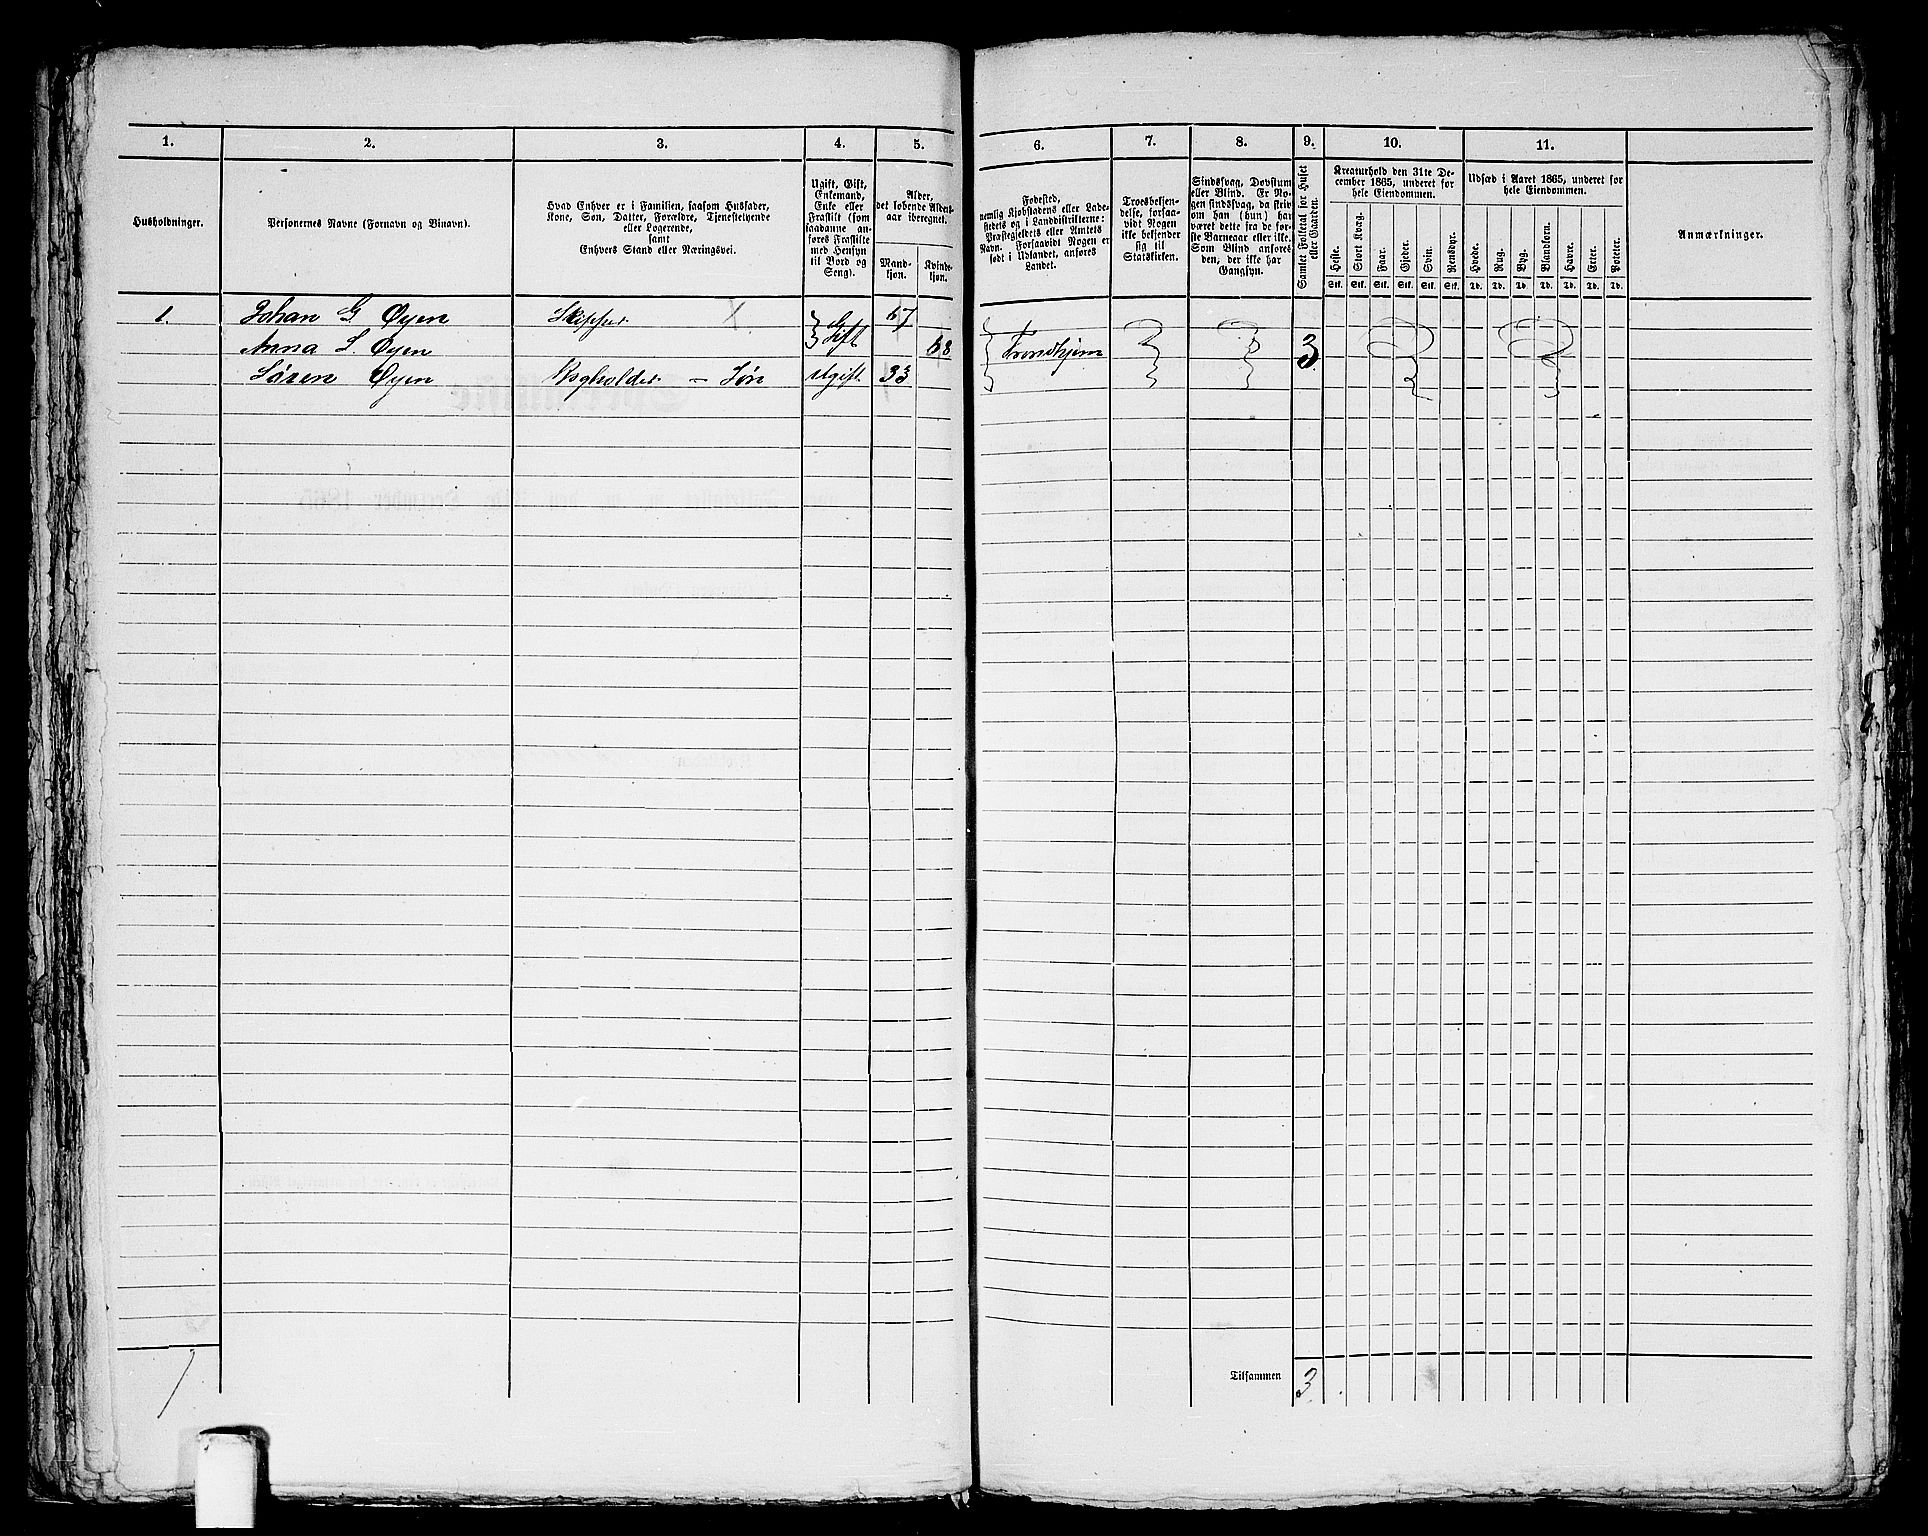 1. 2. 3. 4. 5. 6. 7. 8. 9. 10. 11.
Husholdninger.
Personernes Navne (Fornavn og Binavn).
Hvad Enhver er i Familien, saasom Husfader,
Kone, Søn, Datter, Forældre, Tjenestetyende
eller Logerende,
samt
Enhvers Stand eller Næringsvei.
Ugift, Gift,
Enkemand,
Enke eller
Fraskilt (som
saadanne an-
føres Fraskilte
med Hensyn
til Bord og
Seng).
Alder,
det løbende Alders-
aar iberegnet.
Mand-
kjøn.
Kvinde-
kjøn.
Fødested,
nemlig Kjøbstadens eller Lade-
stedets og i Landdistrikterne:
Præstegjeldets eller Amtets
Navn. Forsaavidt Nogen er
født i Udlandet, anføres
Landet.
Troesbekjen-
delse, forsaa-
vidt Nogen
ikke bekjender
sig til
Statskirken.
Sindssvag, Døvstum
eller Blind. Er No-
gen sindssvag, da skriv
om han (hun) har
været dette fra de før-
ste Barneaar eller ikke.
Som Blind anføres
den, der ikke har
Gangsyn.
Samlet Folketal for Huset
eller Gaarden.
Kreaturhold den 31te De-
cember 1865, underet for
hele Eiendommen.
Heste. Stort Kvæg. Faar. Gjeder. Svin. Rensdyr.
Stk. Stk. Stk. Stk. Stk. Stk.
Udsæd i Aaret 1865, underet for
hele Eiendommen.
Hvede. Rug. Byg. Blandkorn. Havre. Erter. Poteter.
Td. Td. Td. Td. Td. Td. Td.
Anmærkninger.
1. Johan G Øyen Skipper Gift 67
Anna L. Øyen 68 Trondhjem 3
Søren Øyen Bogholder - Søn Ugift 33
Tilsammen 3
1